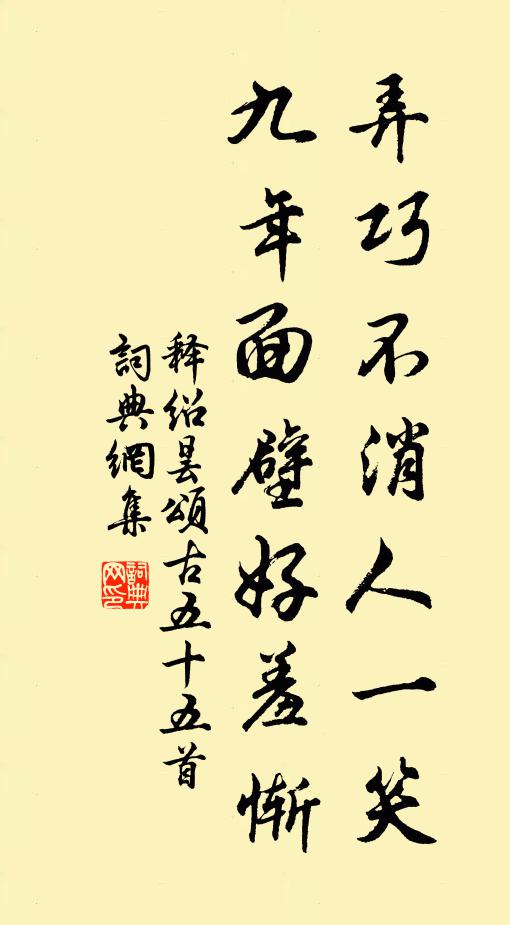 弄巧不消人一笑
九年面壁好羞惭
释绍昙頌古五十五首
詞典網集
詞典网印